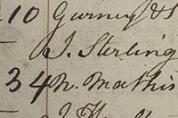 10 Gurney & S
J. Sterling
34 N. Mathis